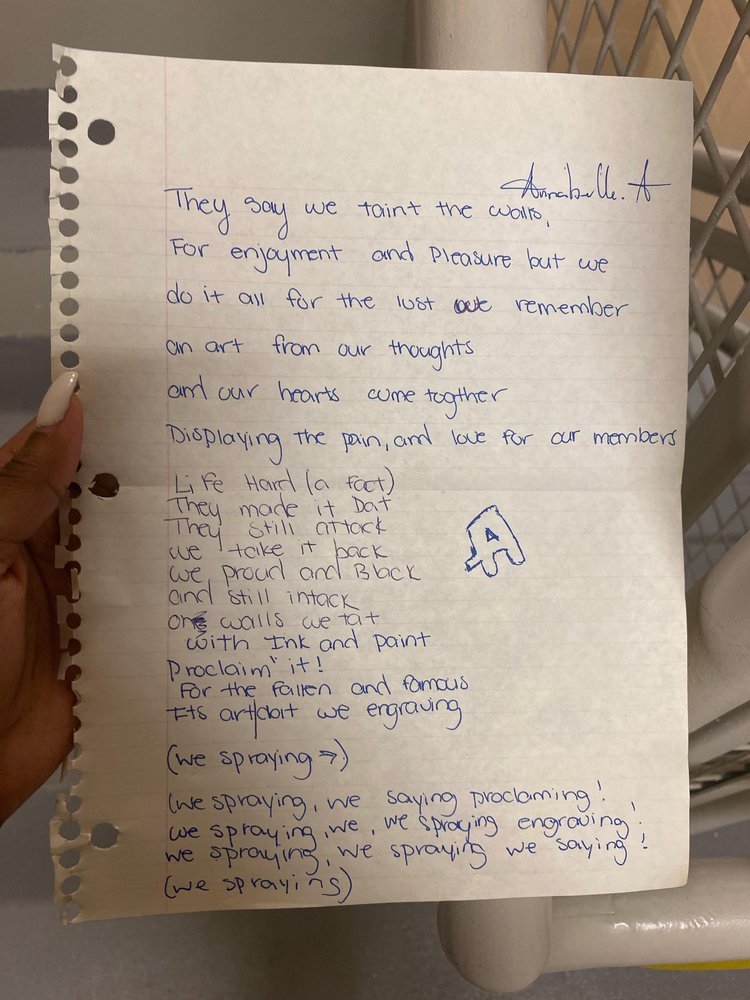 Annabelle. A
They say we taint the walls,
For enjoyment and Pleasure but we
do it all for the lost remember
an art from our thoughts
and our hearts come togther
Displaying the pain, and love for our members
Life Hard (a fact)
They made it Dat
They still attack
we take it back
we proud and Black
and still intack
on walls we tat
with Ink and paint
Proclaim' it!
For the fallen and famous
Its art dat we engraving
(we spraying →)
(we spraying, we saying proclaming!
we spraying, we, we spraying engraving!
we spraying, we spraying we saying!
(we spraying)
A